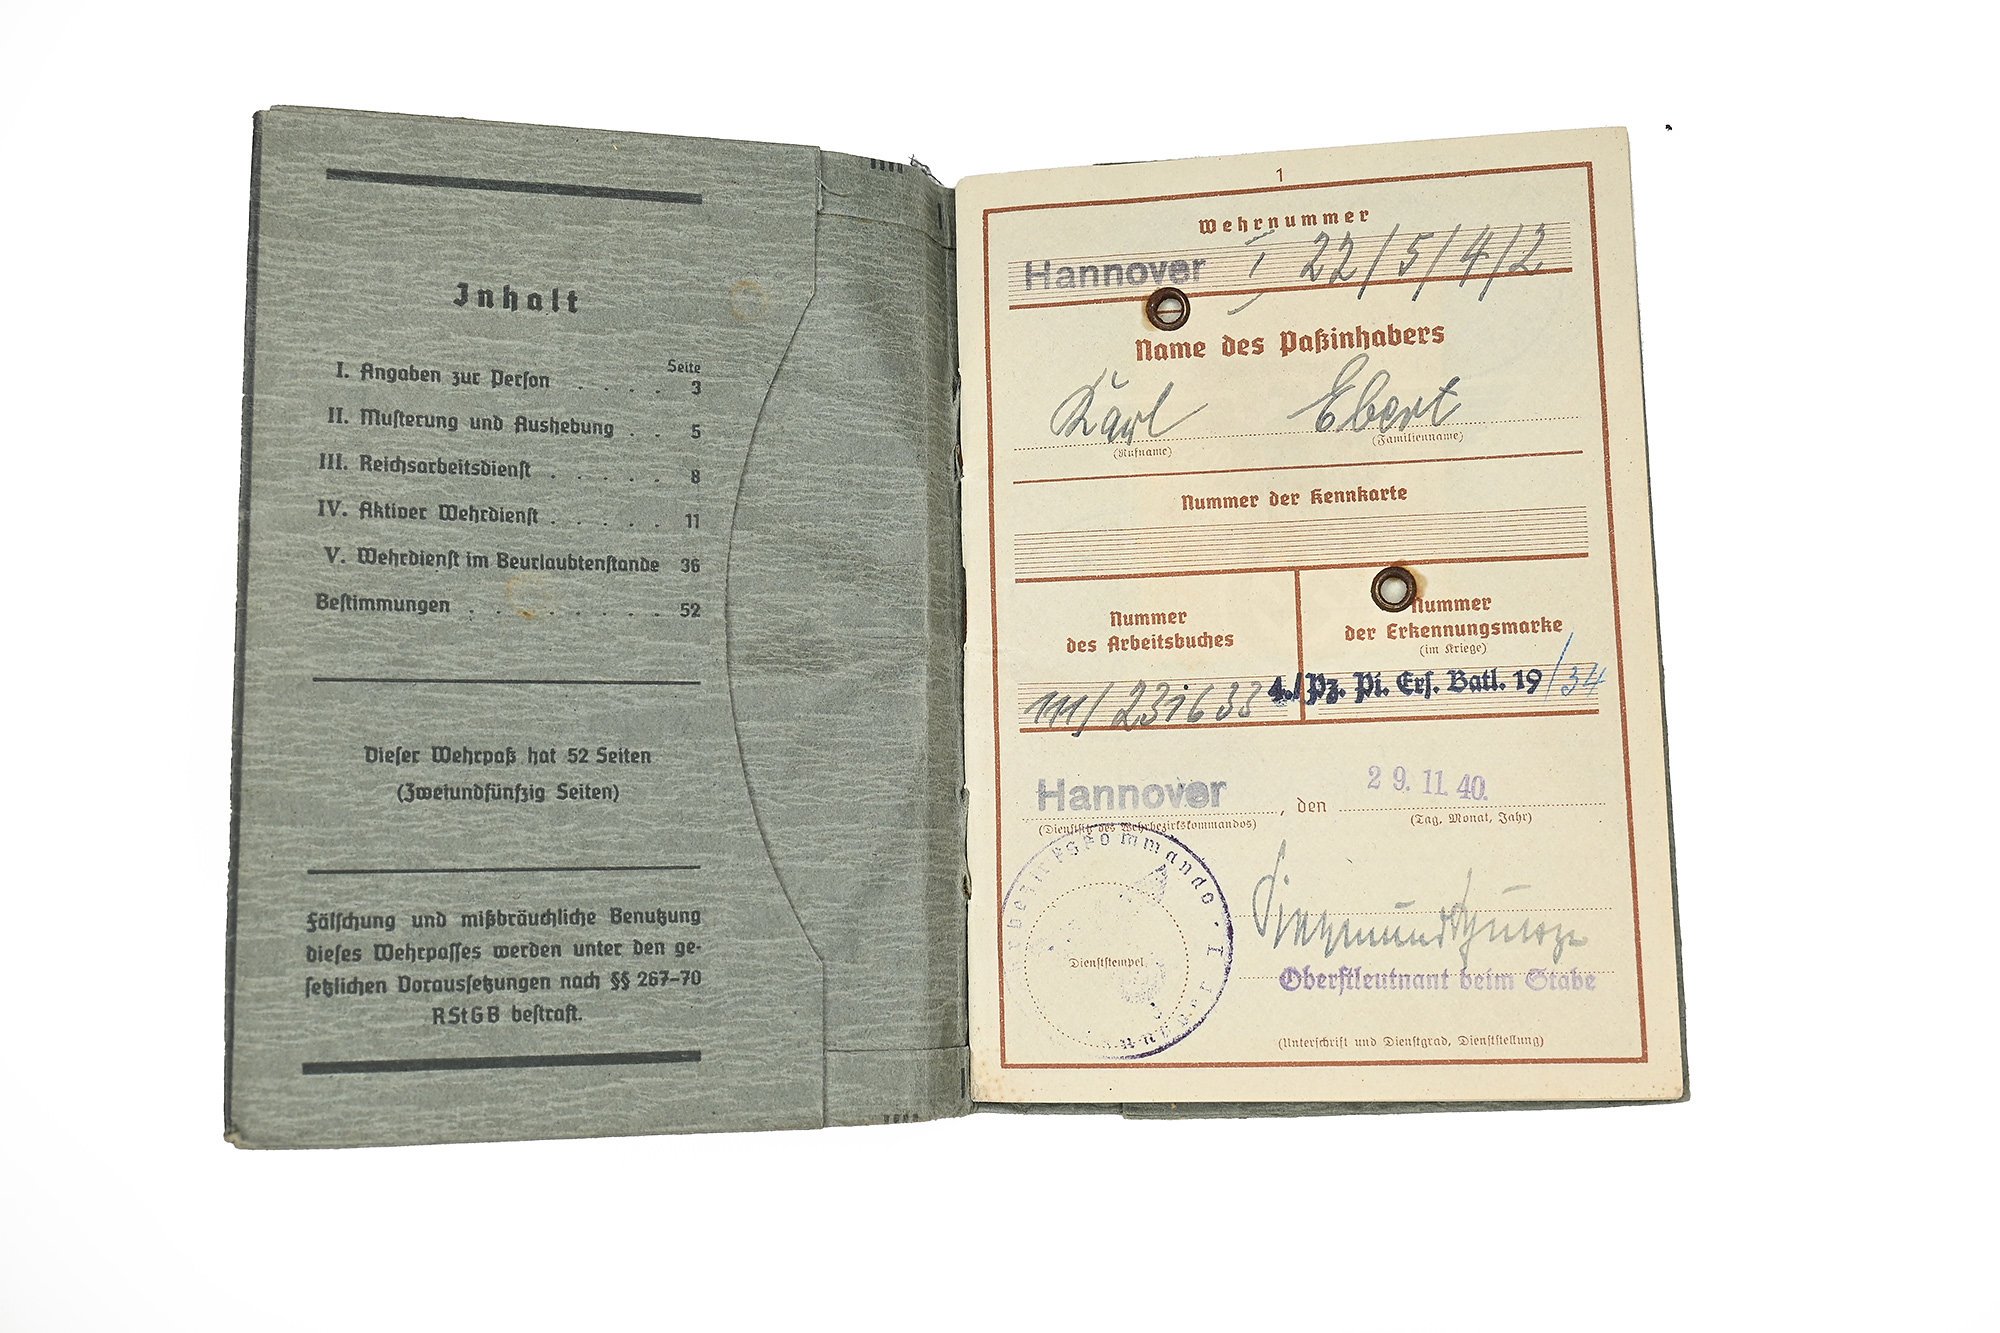 Inhalt
Seite
I. Angaben zur Person . . . . . 3
II. Musterung und Aushebung . . 5
III. Reichsarbeitsdienst . . . . . 8
IV. Aktiver Wehrdienst . . . . . 11
V. Wehrdienst im Beurlaubtenstande 36
Bestimmungen . . . . . . . . 52
Dieser Wehrpaß hat 52 Seiten
(Zweiundfünfzig Seiten)
Fälschung und mißbräuchliche Benutzung
dieses Wehrpasses werden unter den ge-
setzlichen Voraussetzungen nach §§ 267-70
RStGB bestraft.
1
Wehrnummer
Hannover I 22/5/4/2
Name des Paßinhabers
Karl Ebert
(Rufname) (Familienname)
Nummer der Kennkarte
Nummer
des Arbeitsbuches
111/231633
Nummer
der Erkennungsmarke
(im Kriege)
4./Pz. Pi. Ers. Batl. 19/34
Hannover, den 29. 11. 40.
(Dienstsitz des Wehrbezirkskommandos) (Tag, Monat, Jahr)
Wehrbezirkskommando I Hannover
Dienststempel
Oberstleutnant beim Stabe
(Unterschrift und Dienstgrad, Dienststellung)